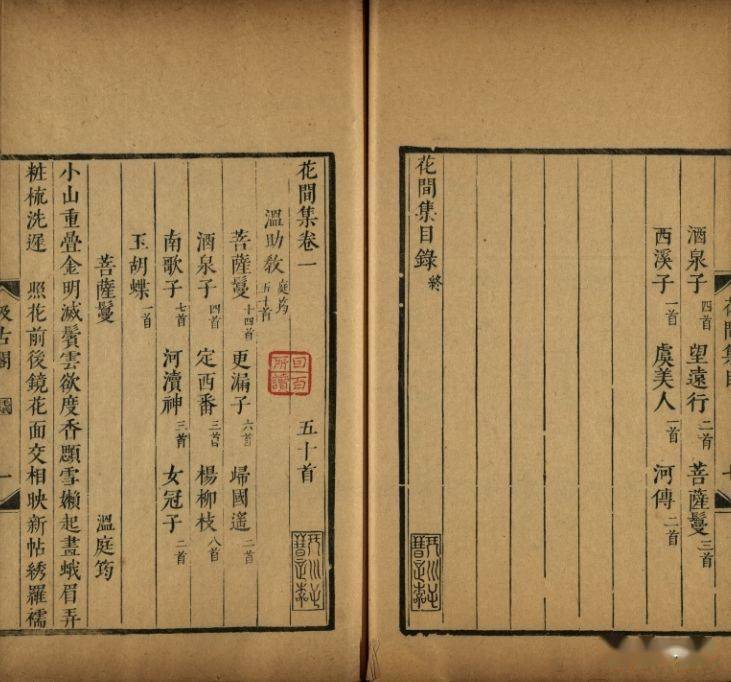 花間集目
酒泉子四首 望遠行二首 菩薩鬘三首
西溪子一首 虞美人一首 河傳二首
花間集目錄終
花間集卷一 五十首
溫助教庭筠五十首
菩薩鬘十四首 更漏子六首 歸國遙二首
酒泉子四首 定西番三首 楊柳枝八首
南歌子七首 河瀆神三首 女冠子二首
玉胡蝶一首
菩薩鬘 溫庭筠
小山重疊金明滅鬢雲欲度香顋雪嬾起畫蛾眉弄
粧梳洗遲 照花前後鏡花面交相映新帖綉羅襦
汲古閣 一